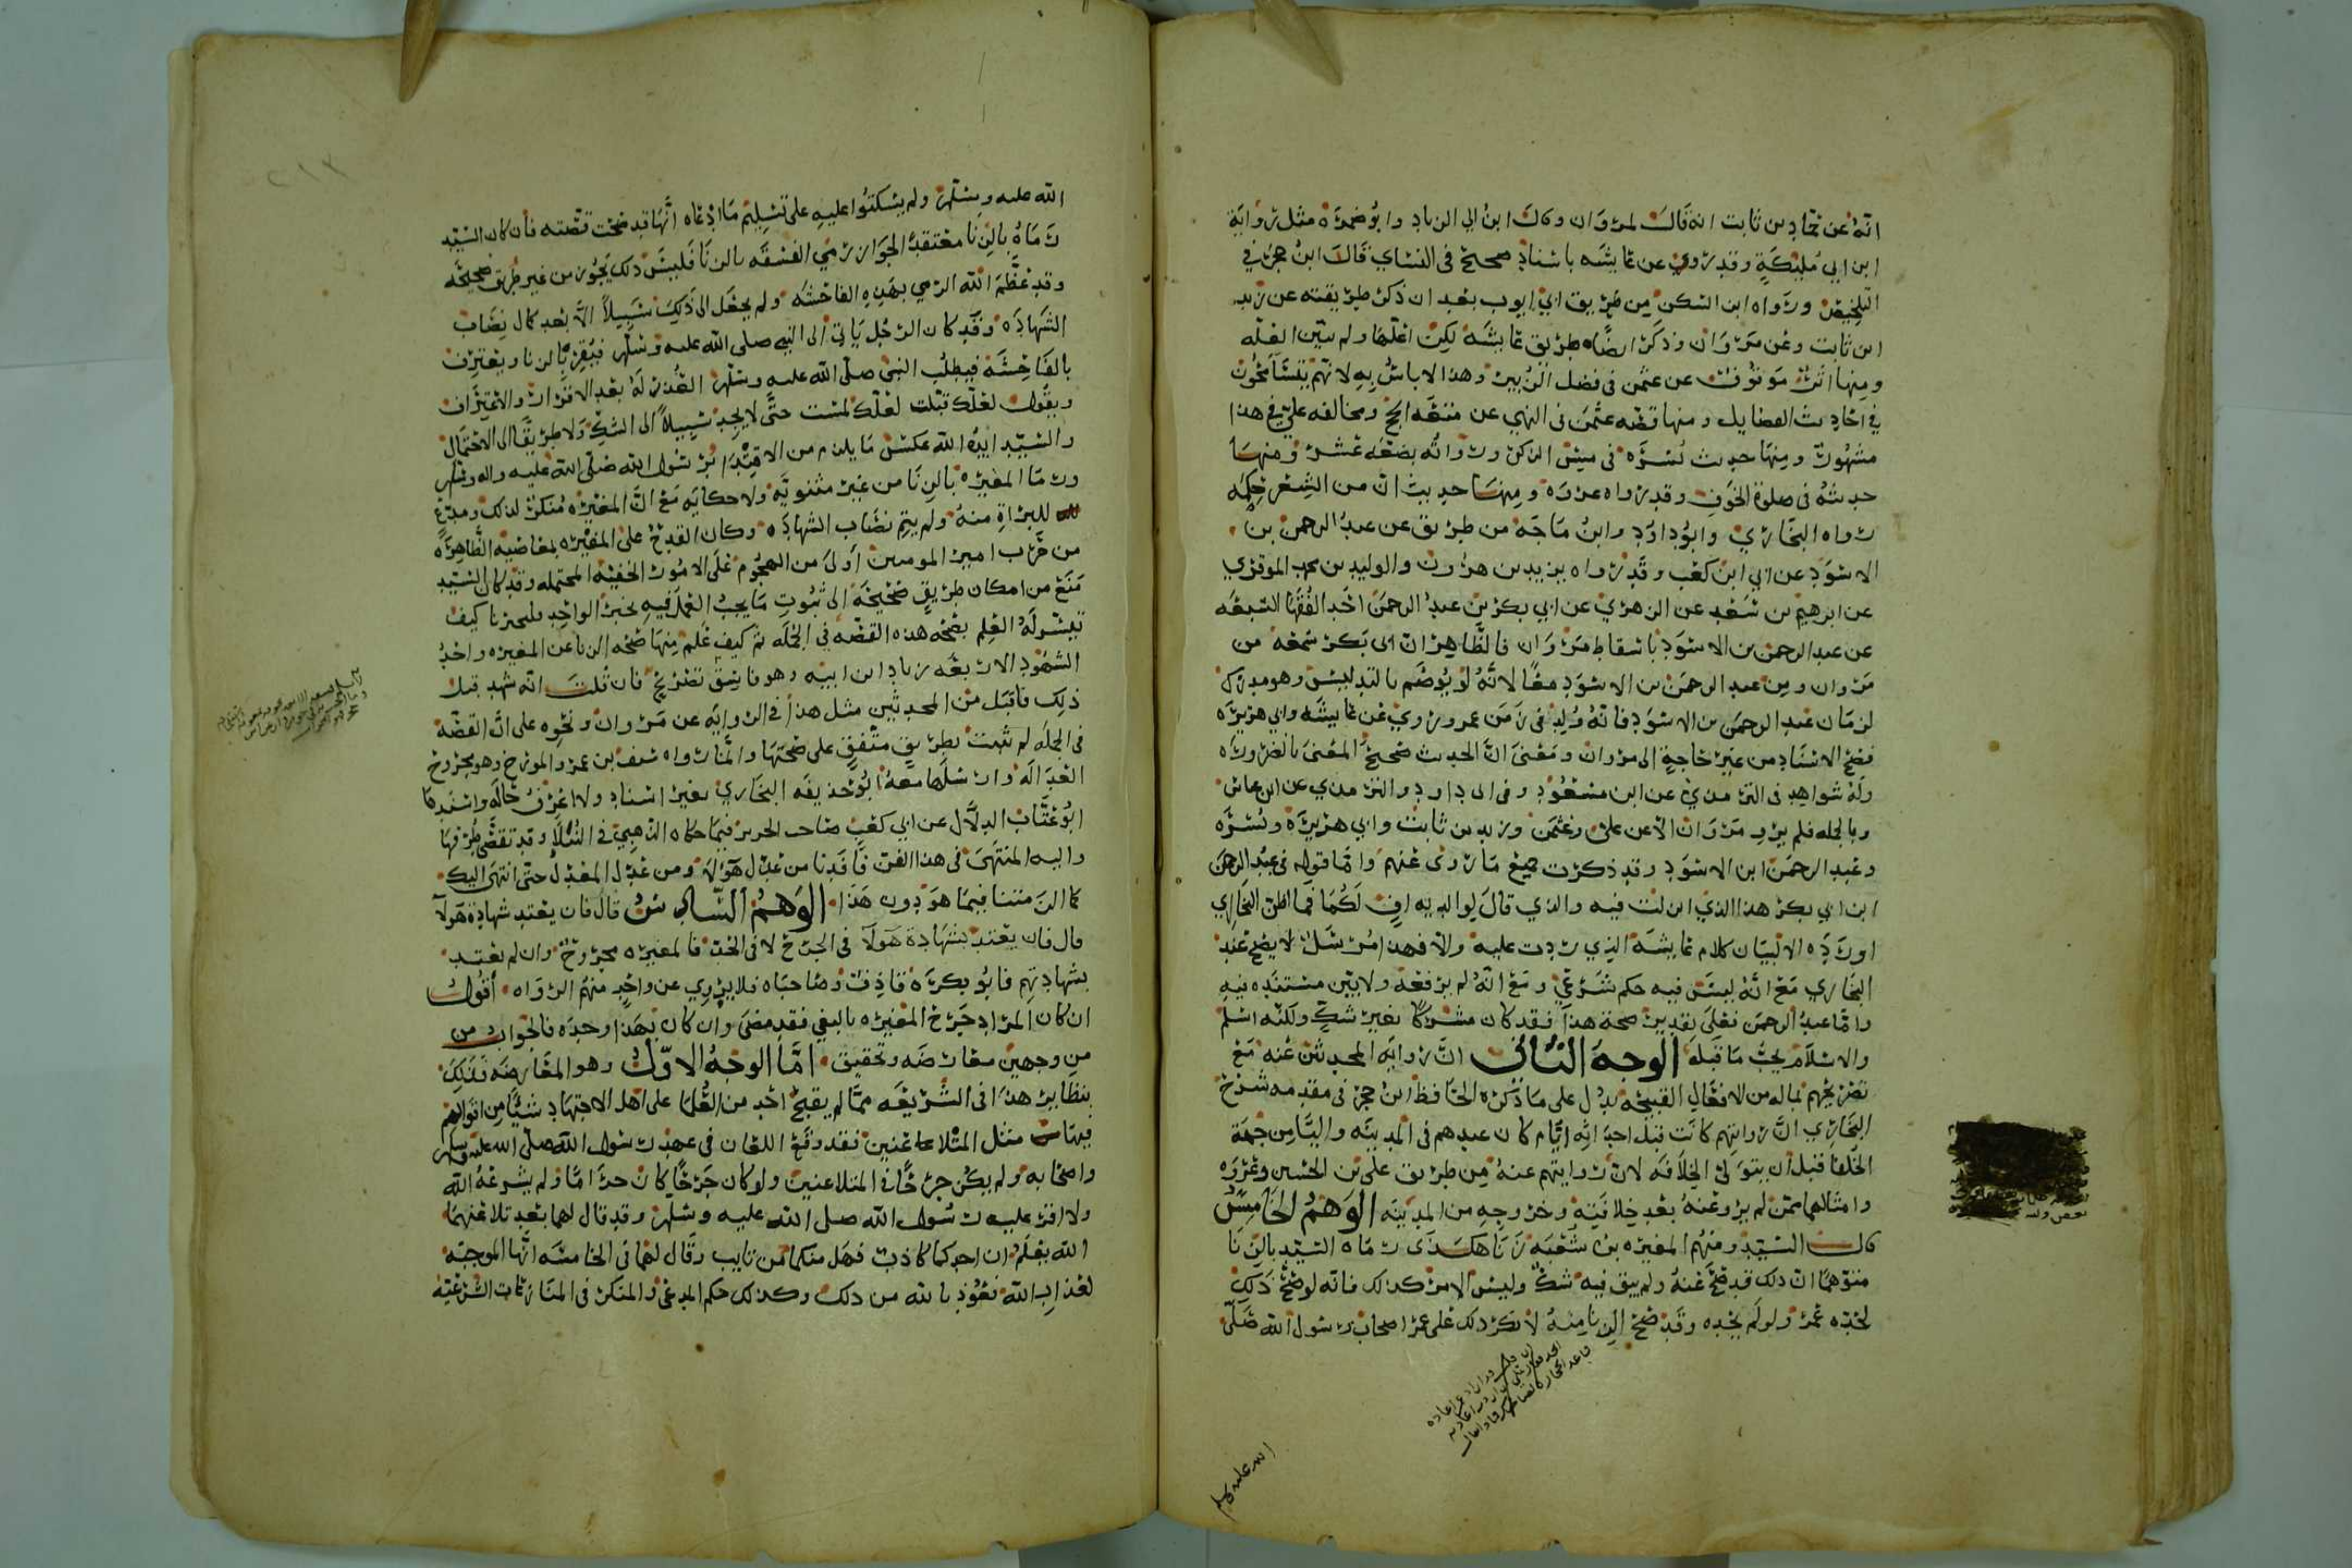 انه عن حماد بن ثابت انه قال لمروان وكان ابن ابي الزناد وابو ضمره مثل رواية
ابن ابي مليكة وقد روي عن عايشه باسناد صحيح في النساي قال ابن حجر في
التلخيص ورواه ابن السكن من طريق ابي ايوب بعد ان ذكر طريقته عن زيد
ابن ثابت وعن مروان وذكر ايضا طريق عايشه لكن اعلها ولم يبين العله
ومنها اثر موقوف عن عثمن في فضل الزبير وهذا لا باس به لانهم يتسامحون
في احاديث الفضايل ومنها قصه عثمن في النهي عن متعه الحج ومخالفه علي في هذا
مشهور ومنها حديث بسره في مس الذكر ورواته بضعه عشر ومنها
حديثه في صلوة الخوف وقد رواه عروه ومنها حديث ان من الشعر حكمه
رواه البخاري وابو داود وابن ماجه من طريق عن عبد الرحمن بن
الاسود عن ابي ابن كعب وقد رواه يزيد بن هرون والوليد بن محمد الموقري
عن ابرهيم بن سعد عن الزهري عن ابي بكر بن عبد الرحمن احد الفقها السبعه
عن عبد الرحمن بن الاسود باسقاط مروان فالظاهر ان ابي بكر سمعه من
مروان ومن عبد الرحمن بن الاسود معا لانه لو يوصم بالتدليس وهو مدرك
لزمان عبد الرحمن بن الاسود فانه ولد في زمن عمر وروي عن عايشه وابي هريره
فصح الاسناد من غير حاجة الى مروان ومعنى ان الحديث صحيح المعنى بالضروره
وله شواهد في الترمذي عن ابن مسعود وفي ابي داود والترمذي عن ابن عباس
وبالجمله فلم يرو مروان الا عن علي وعثمن وزيد بن ثابت وابي هريره وبسره
وعبد الرحمن ابن الاسود وقد ذكرت جميع ما روى عنهم واما قوله في عبد الرحمن
ابن ابي بكر هذا الذي انزلت فيه والذي قال لوالديه اف لكما فما اظن البخاري
اورده الا لبيان كلام عايشه الذي ردت عليه والا فهذا مرسل لا يصح عند
البخاري مع انه ليس فيه حكم شرعي ومع انه لم يرفعه ولا بين مستنده فيه
واما عبد الرحمن فعلى تقدير صحة هذا فقد كان مشركا بغير شك ولكنه اسلم
والاسلام يجب ما قبله الوجه الثاني ان روايه المحدثين عنه مع
تصريحهم بماله من الافعال القبيحه يدل على ما ذكره الحافظ ابن حجر في مقدمه شرح
البخاري ان روايتهم كانت قبل احداثه ايام كان عندهم في المدينه واليا من جهة
الخلفا قبل ان يتولى الخلافه لان روايتهم عنه من طريق علي بن الحسين وعروه
وامثالهما ممن لم يرو عنه بعد خلافته وخروجه من المدينه الوهم الخامس
قال السيد ومنهم المغيره بن شعبه زنا هكذى رماه السيد بالزنا
متوهما ان ذلك قد صح عنه ولم يبق فيه شك وليس الامر كذلك فانه لو صح ذلك
لحده عمر ولو لم يحده وقد صح الزنا منه لانكر ذلك على عمر اصحاب رسول الله صلى
الله عليه وسلم
الله عليه وسلم ولم يسكتوا عليه على تسليم ما ادعاه انها قد صحت قصته فان كان السيد
رماه بالزنا معتقدا لجواز رمي الفسقه بالزنا فليس ذلك يجوز من غير طريق صحيحه
وقد عظم الله الرمي بهذه الفاحشه ولم يجعل الى ذلك سبيلا الا بعد كمال نصاب
الشهاده وقد كان الرجل ياتي الى النبي صلى الله عليه وسلم فيقر بالزنا ويعترف
بالفاحشه فيطلب النبي صلى الله عليه وسلم العذر له بعد الاقرار والاعتراف
ويقول لعلك قبلت لعلك لمست حتى لا يجد سبيلا الى الشك ولا طريقا الى الاحتمال
والسيد ايده الله عكس ما يلزم من الاقتدا برسول الله صلى الله عليه واله وسلم
ورمى المغيره بالزنا من غير مثنويه ولا حكايه مع ان المغيره منكر لذلك ومدع
للبراة منه ولم يتم نصاب الشهاده وكان القدح على المغيره بمعاصيه الظاهره
من حرب امير المومنين اولى من الهجوم على الامور الخفيه المحتمله وقد كان السيد
منع من امكان طريق صحيحه الى ثبوت ما يجب العمل فيه بخبر الواحد فليخبرنا كيف
تيسر له العلم بصحه هذه القصه في الجمله ثم كيف علم منها صحه الزنا عن المغيره واحد
الشهود الاربعه زياد ابن ابيه وهو فاسق تصريح فان قلت انه شهد قبل
ذلك فاقبل من المحدثين مثل هذا في الروايه عن مروان ونحوه على ان القصه
في الجمله لم تثبت بطريق متفق على صحتها وانما رواه سيف بن عمر والمورخ وهو مجروح
العداله وارسلها معه ابو حذيفه البخاري بغير اسناد ولا اعرف حاله واسندها
ابو عتاب الدلال عن ابي كعب صاحب الحرير فيما حكاه الذهبي في النبلا وقد تقضى طرقها
واليه المنتهى في هذا الفن فافدنا من عدل هولا ومن عدل المعدل حتى انتهى اليك
كما الزمتنا فيما هو دون هذا الوهم السادس قال فان يعتد شهادة هولا
قال فان يعتد بشهادة هولا في الجرح لا في الحد فالمغيره مجروح وان لم يعتد
بشهادتهم فابو بكره قاذف وصاحباه فلا يروي عن واحد منهم الرواه اقول
ان كان المراد جرح المغيره بالبغي فقد مضى وان كان بهذا وحده فالجواب من
من وجهين معارضه وتحقيق اما الوجه الاول وهو المعارضه فذلك
بنظاير هذا في الشريعه مما لم يقبح احد من العلما على اهل الاجتهاد شيا من اقوالهم
فيها مثل المتلاعنين فقد وقع اللعان في عهد رسول الله صلى الله عليه وسلم
واصحابه ولم يكن جرحا في المتلاعنين ولو كان جرحا كان حراما ولم يشرعه الله
ولا اقر عليه رسول الله صلى الله عليه وسلم وقد قال لهما بعد تلاعنهما
الله يعلم ان احدكما كاذب فهل منكما من تايب وقال لهما في الخامسه انها الموجبه
لعذاب الله نعوذ بالله من ذلك وكذلك حكم المدعي والمنكر في المنازعات الشرعيه